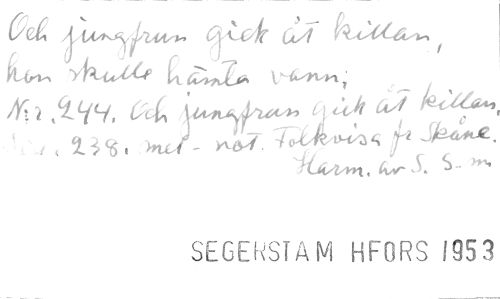 Och jungfrun gick åt killan,
hon skulle hämta vann;
N:r. 244. Och jungfrun gick åt killan.
238. mel - not. Folkvisa fr Skåne.
Harm. av S. S-m
SEGERSTAM HFORS 1953